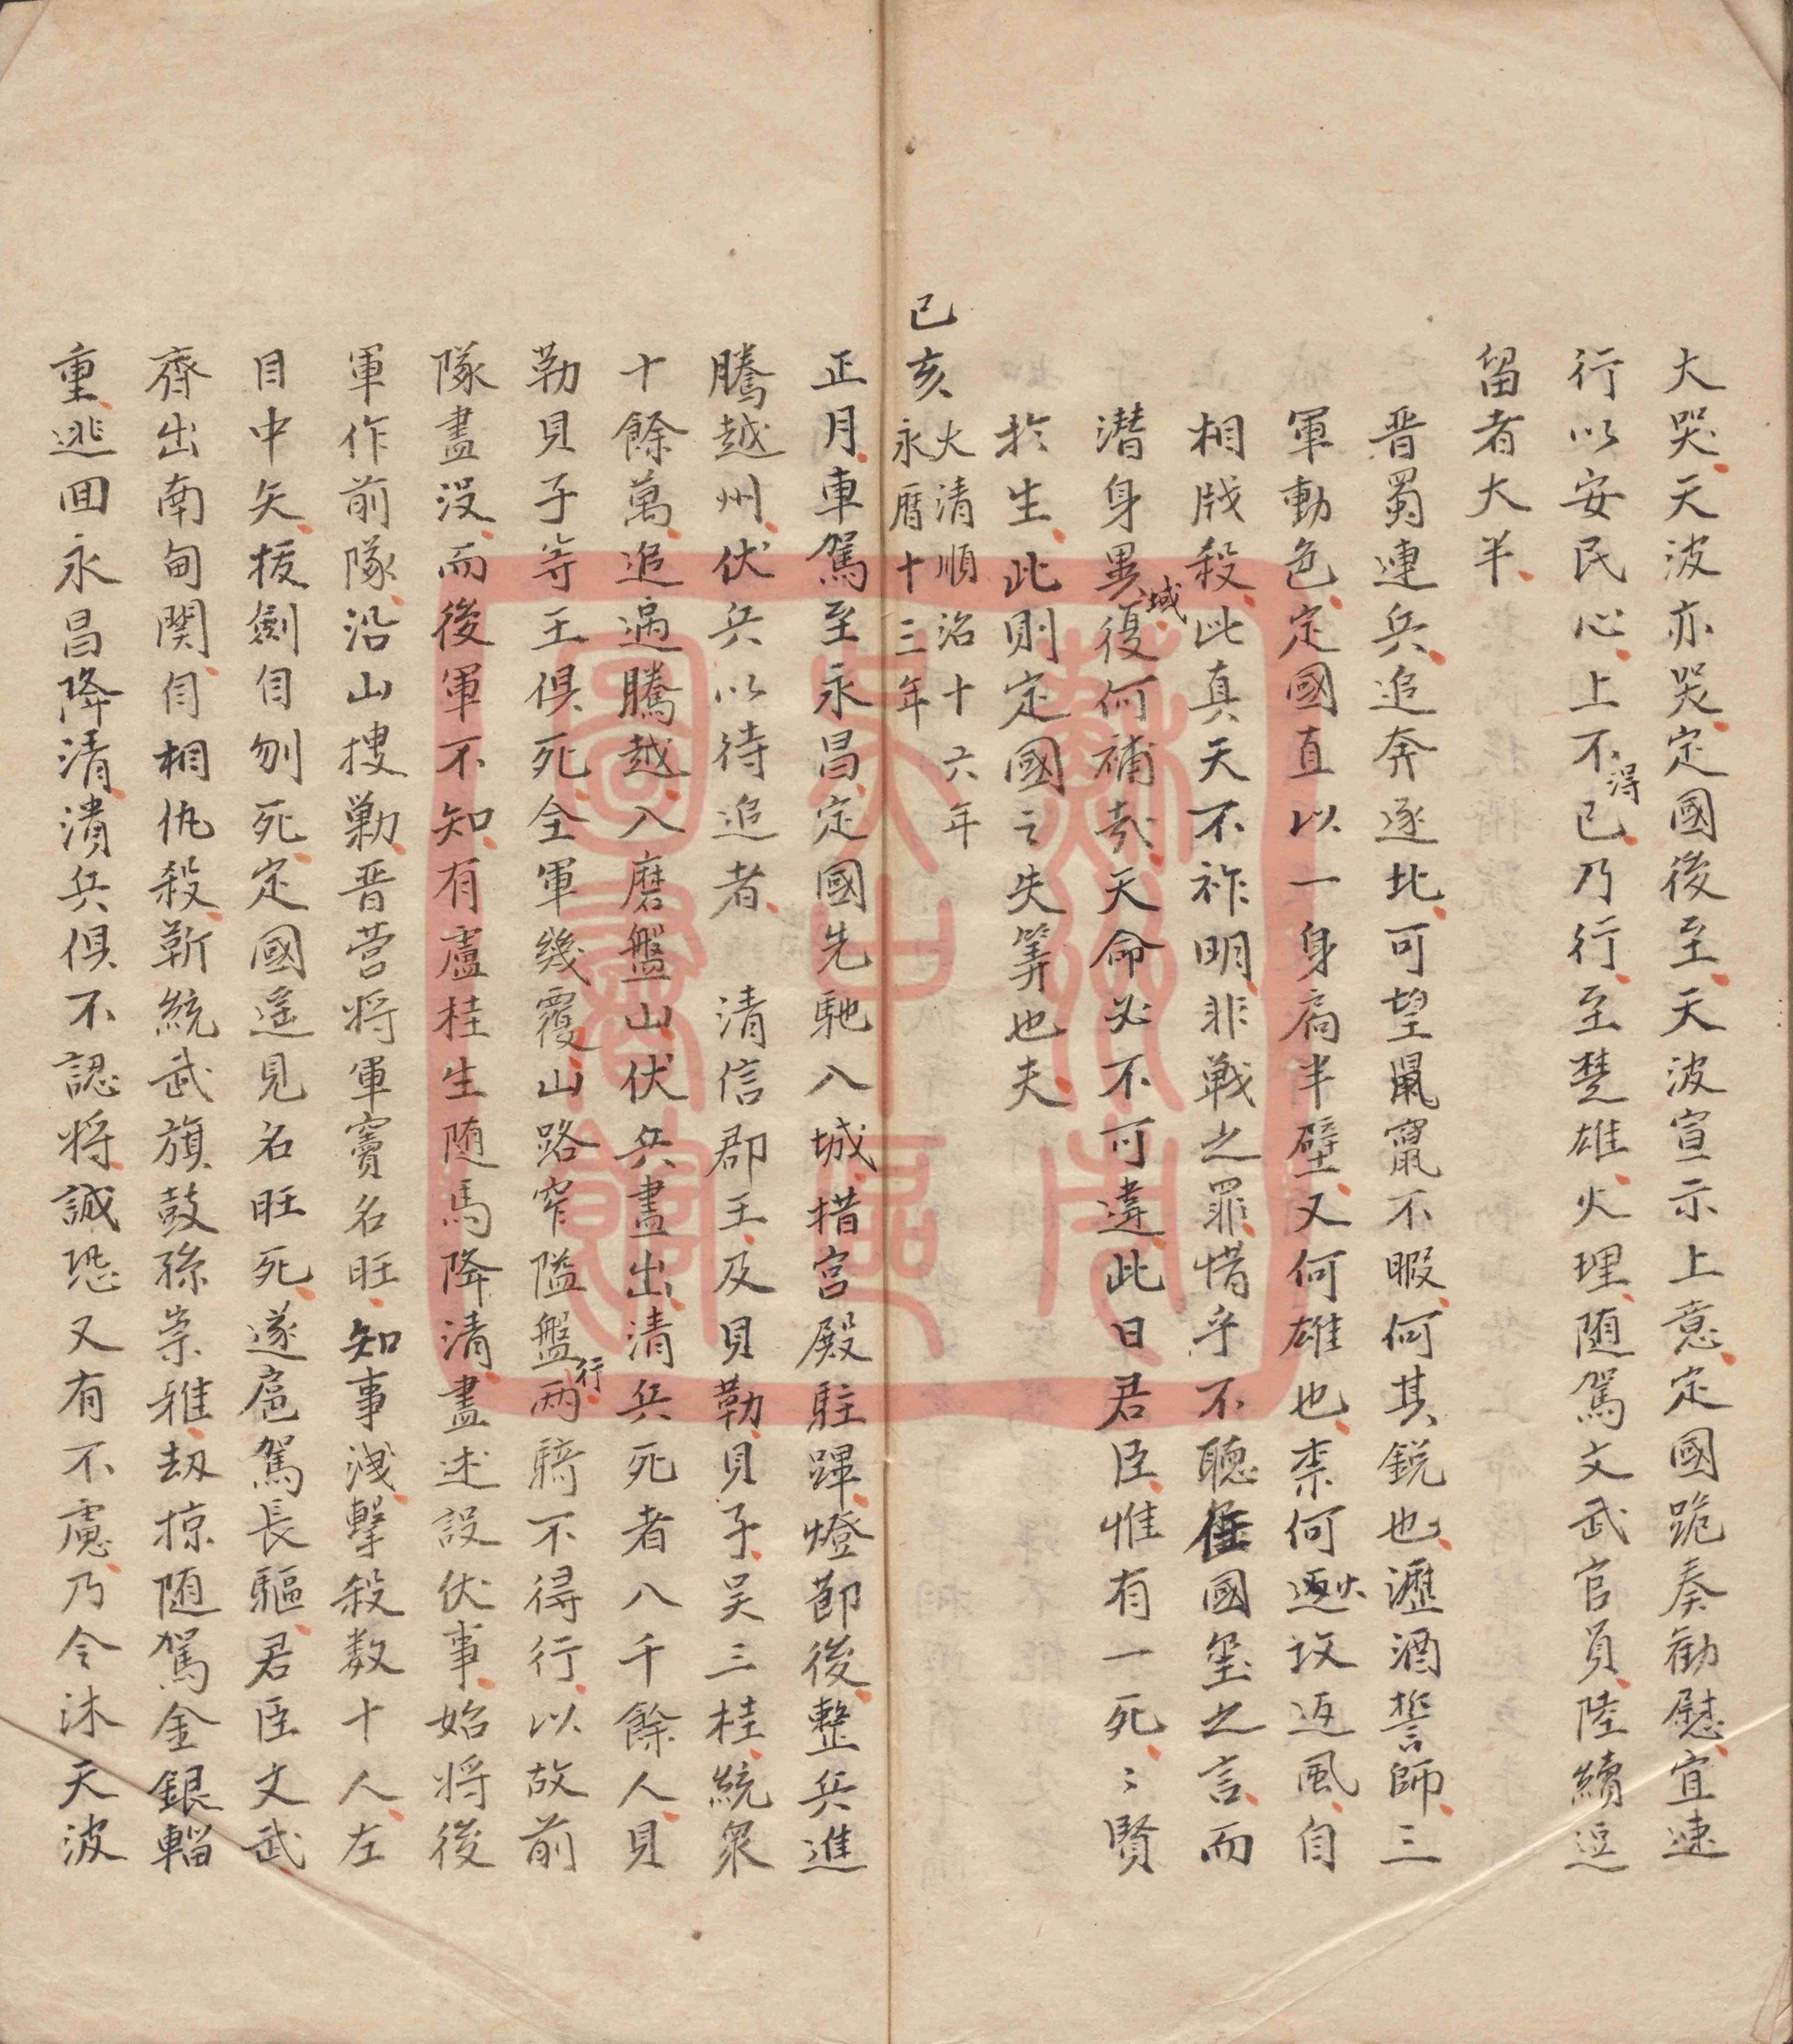 大哭天波亦哭定國後至天波宣示上意定國跪奏勸慰宜速
行以安民心上不得已乃行至楚雄火理随駕文武官員陸續逗
留者大半
晋蜀連兵追奔逐北可望鼠竄不暇何其銳也瀝酒誓師三
軍動色定國直以一身肩半壁又何雄也柰何逖火攻返風自
相戕殺此真天不祚明非戰之罪惜乎不聽隹國璽之言而
潜身異域復何補哉天命必不可違此日君臣惟有一死〻賢
扵生此則定國之失筭也夫
己亥
大清順治十六年
永曆十三年
正月車駕至永昌定國先馳入城措宫殿駐蹕燈節後整兵進
騰越州伏兵以待追者 清信郡王及貝勒貝子吴三桂統衆
十餘萬追過騰越入磨盤山伏兵盡出清兵死者八千餘人貝
勒貝子等王俱死全軍幾覆山路窄隘盤行兩騎不得行以故前
隊盡没而後軍不知有盧桂生随馬降清盡述設伏事始将後
軍作前隊沿山搜勦晋营将軍竇名旺知事洩擊殺数十人左
目中矢拔劍自刎死定國遥見名旺死遂扈駕長驅君臣文武
齊出南甸関自相仇殺靳統武旗鼓孫崇雅劫掠随駕金銀輜
重逃囬永昌降清潰兵俱不認将誠恐又有不慮乃令沐天波